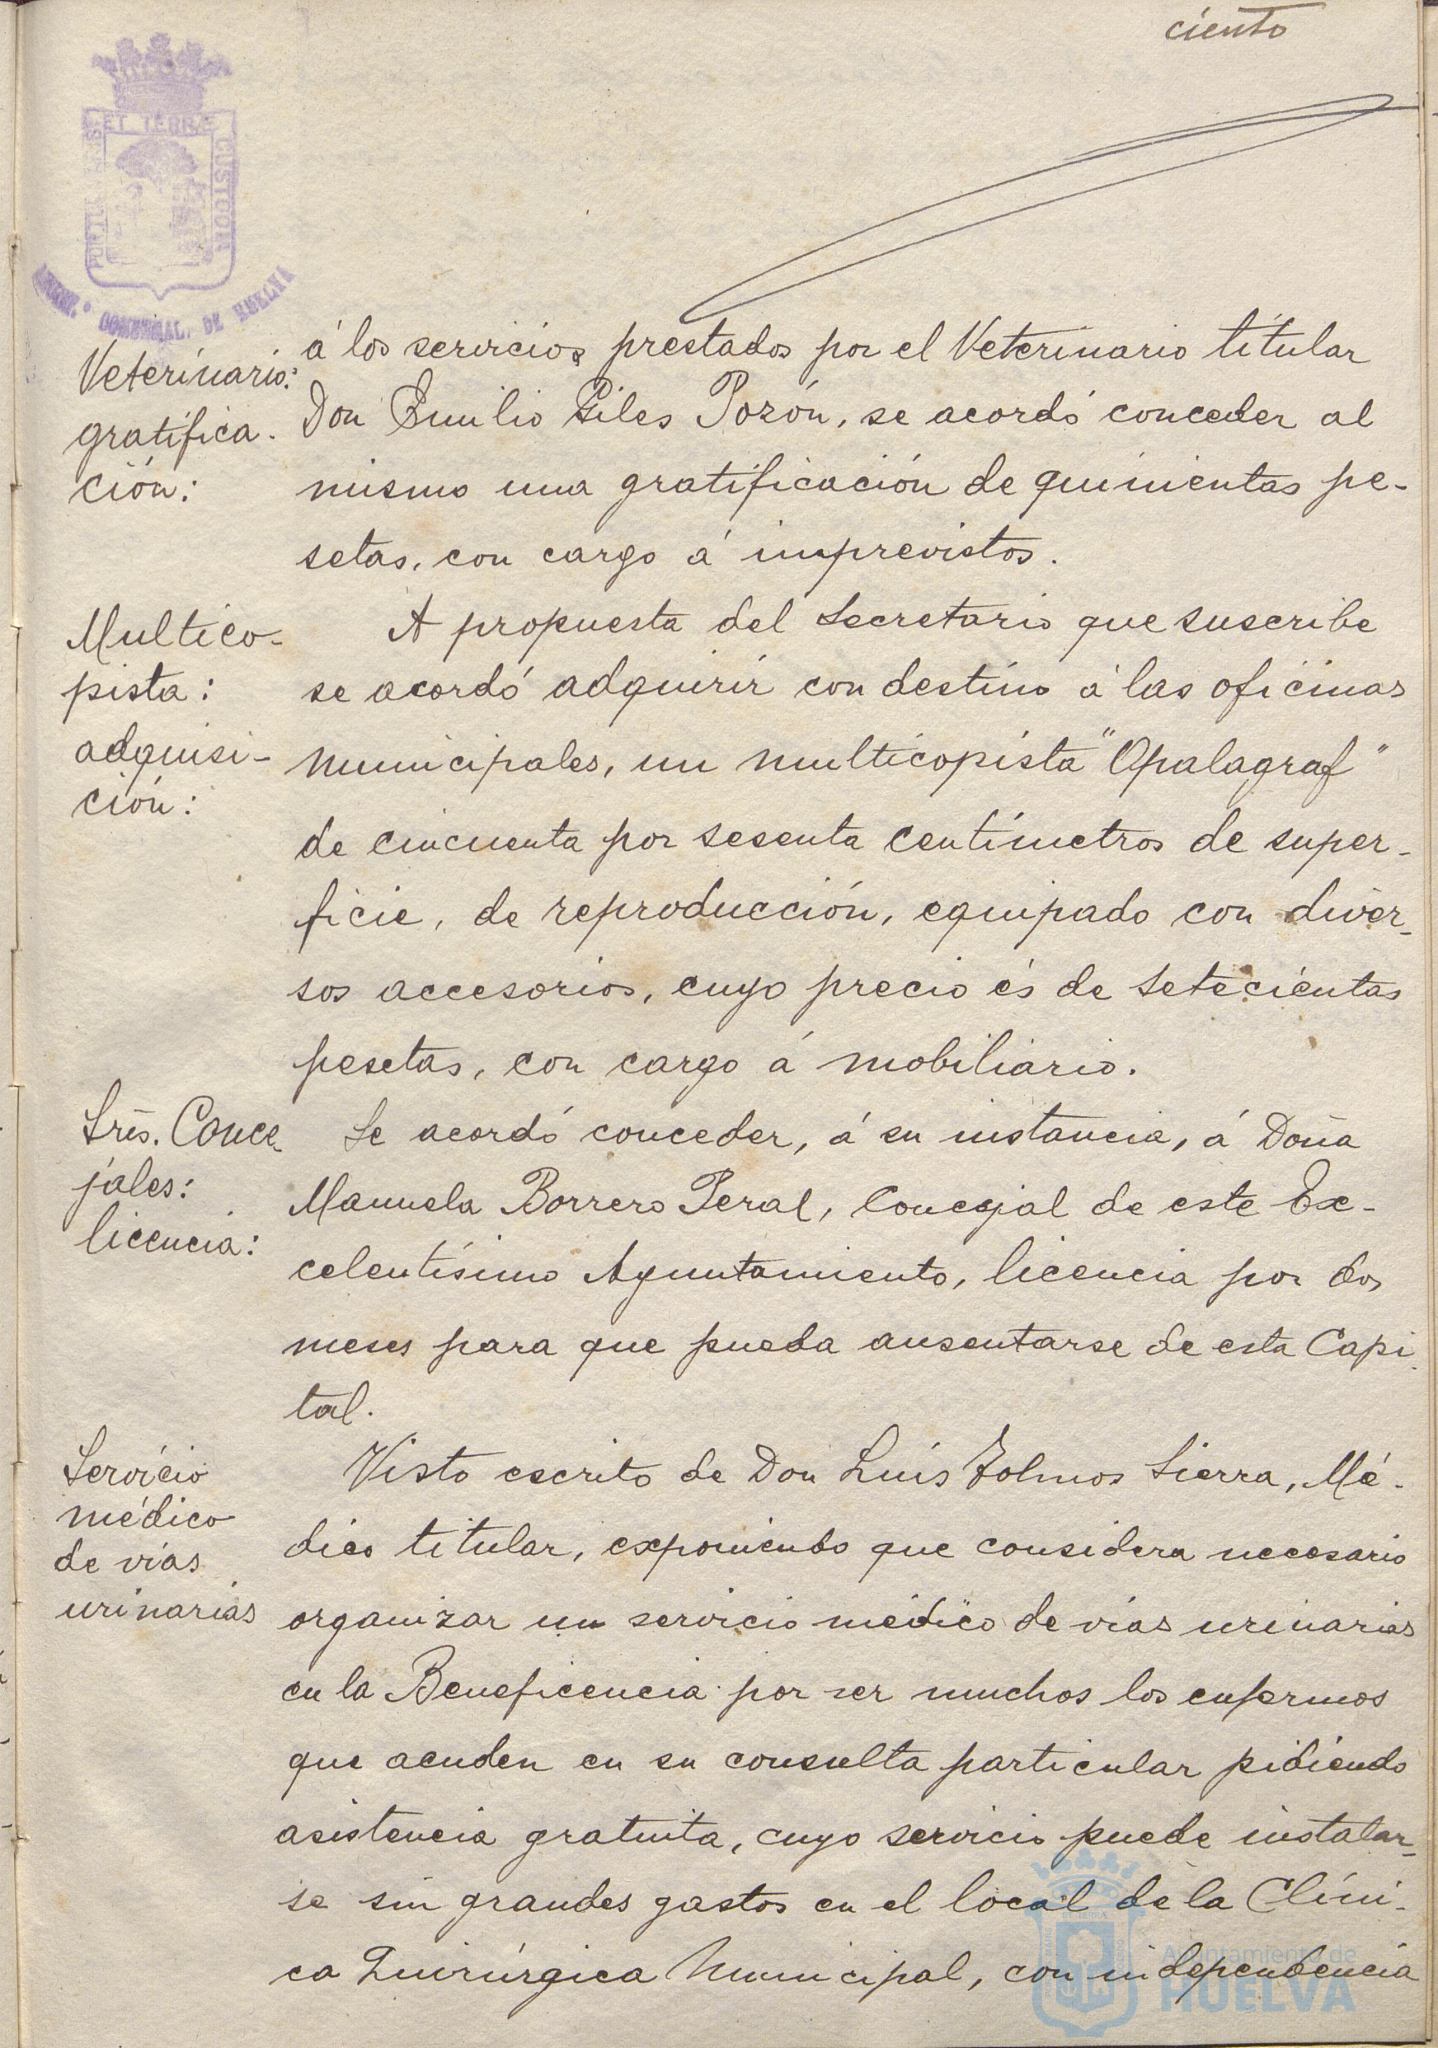 ciento
ET TERRÆ
CUSTODIA
DE HUELVA
Veterinario:
gratifica-
ción:
á los servicios prestados por el Veterinario titular
Don Emilio Giles Pozón, se acordó conceder al
mismo una gratificación de quinientas pe-
setas, con cargo á imprevistos.
Multico-
pista:
adquisi-
ción:
A propuesta del Secretario que suscribe
se acordó adquirir con destino á las oficinas
municipales, un multicopista "Opalagraf"
de cincuenta por sesenta centímetros de super-
ficie, de reproducción, equipado con diver-
sos accesorios, cuyo precio és de setecientas
pesetas, con cargo á mobiliario.
Srēs. Conce-
jales:
licencia:
Se acordó conceder, á su instancia, á Doña
Manuela Borrero Peral, Concejal de este Ex-
celentísimo Ayuntamiento, licencia por dos
meses para que pueda ausentarse de esta Capi-
tal.
Servicio
médico
de vías
urinarias
Visto escrito de Don Luís Tolmos Sierra, Mé-
dico titular, exponiendo que considera necesario
organizar un servicio médico de vías urinarias
en la Beneficencia por ser muchos los enfermos
que acuden en su consulta particular pidiendo
asistencia gratuita, cuyo servicio puede instalar-
se sin grandes gastos en el local de la Clíni-
ca Quirúrgica Municipal, con independencia
Ayuntamiento de
HUELVA